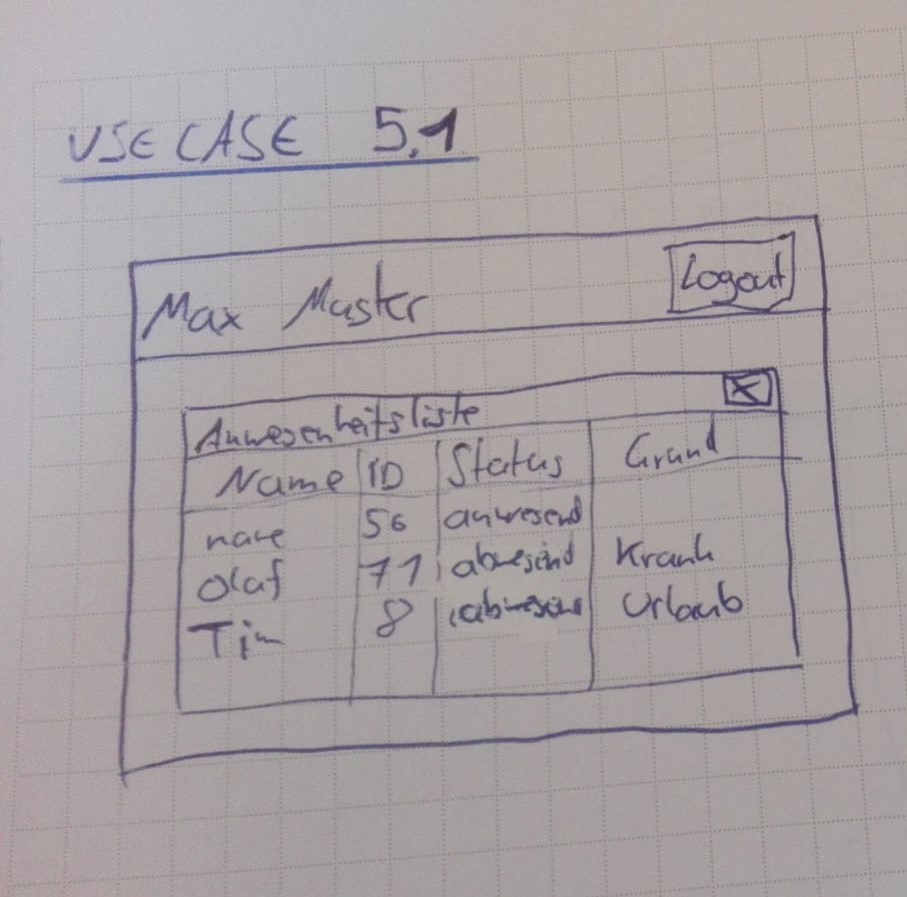 USE CASE 5.1
Max Muster Logout
X
Anwesenheitsliste
Name ID Status Grund
56 anwesend
Olaf 71 abwesend Krank
Tim 8 abwesend Urlaub